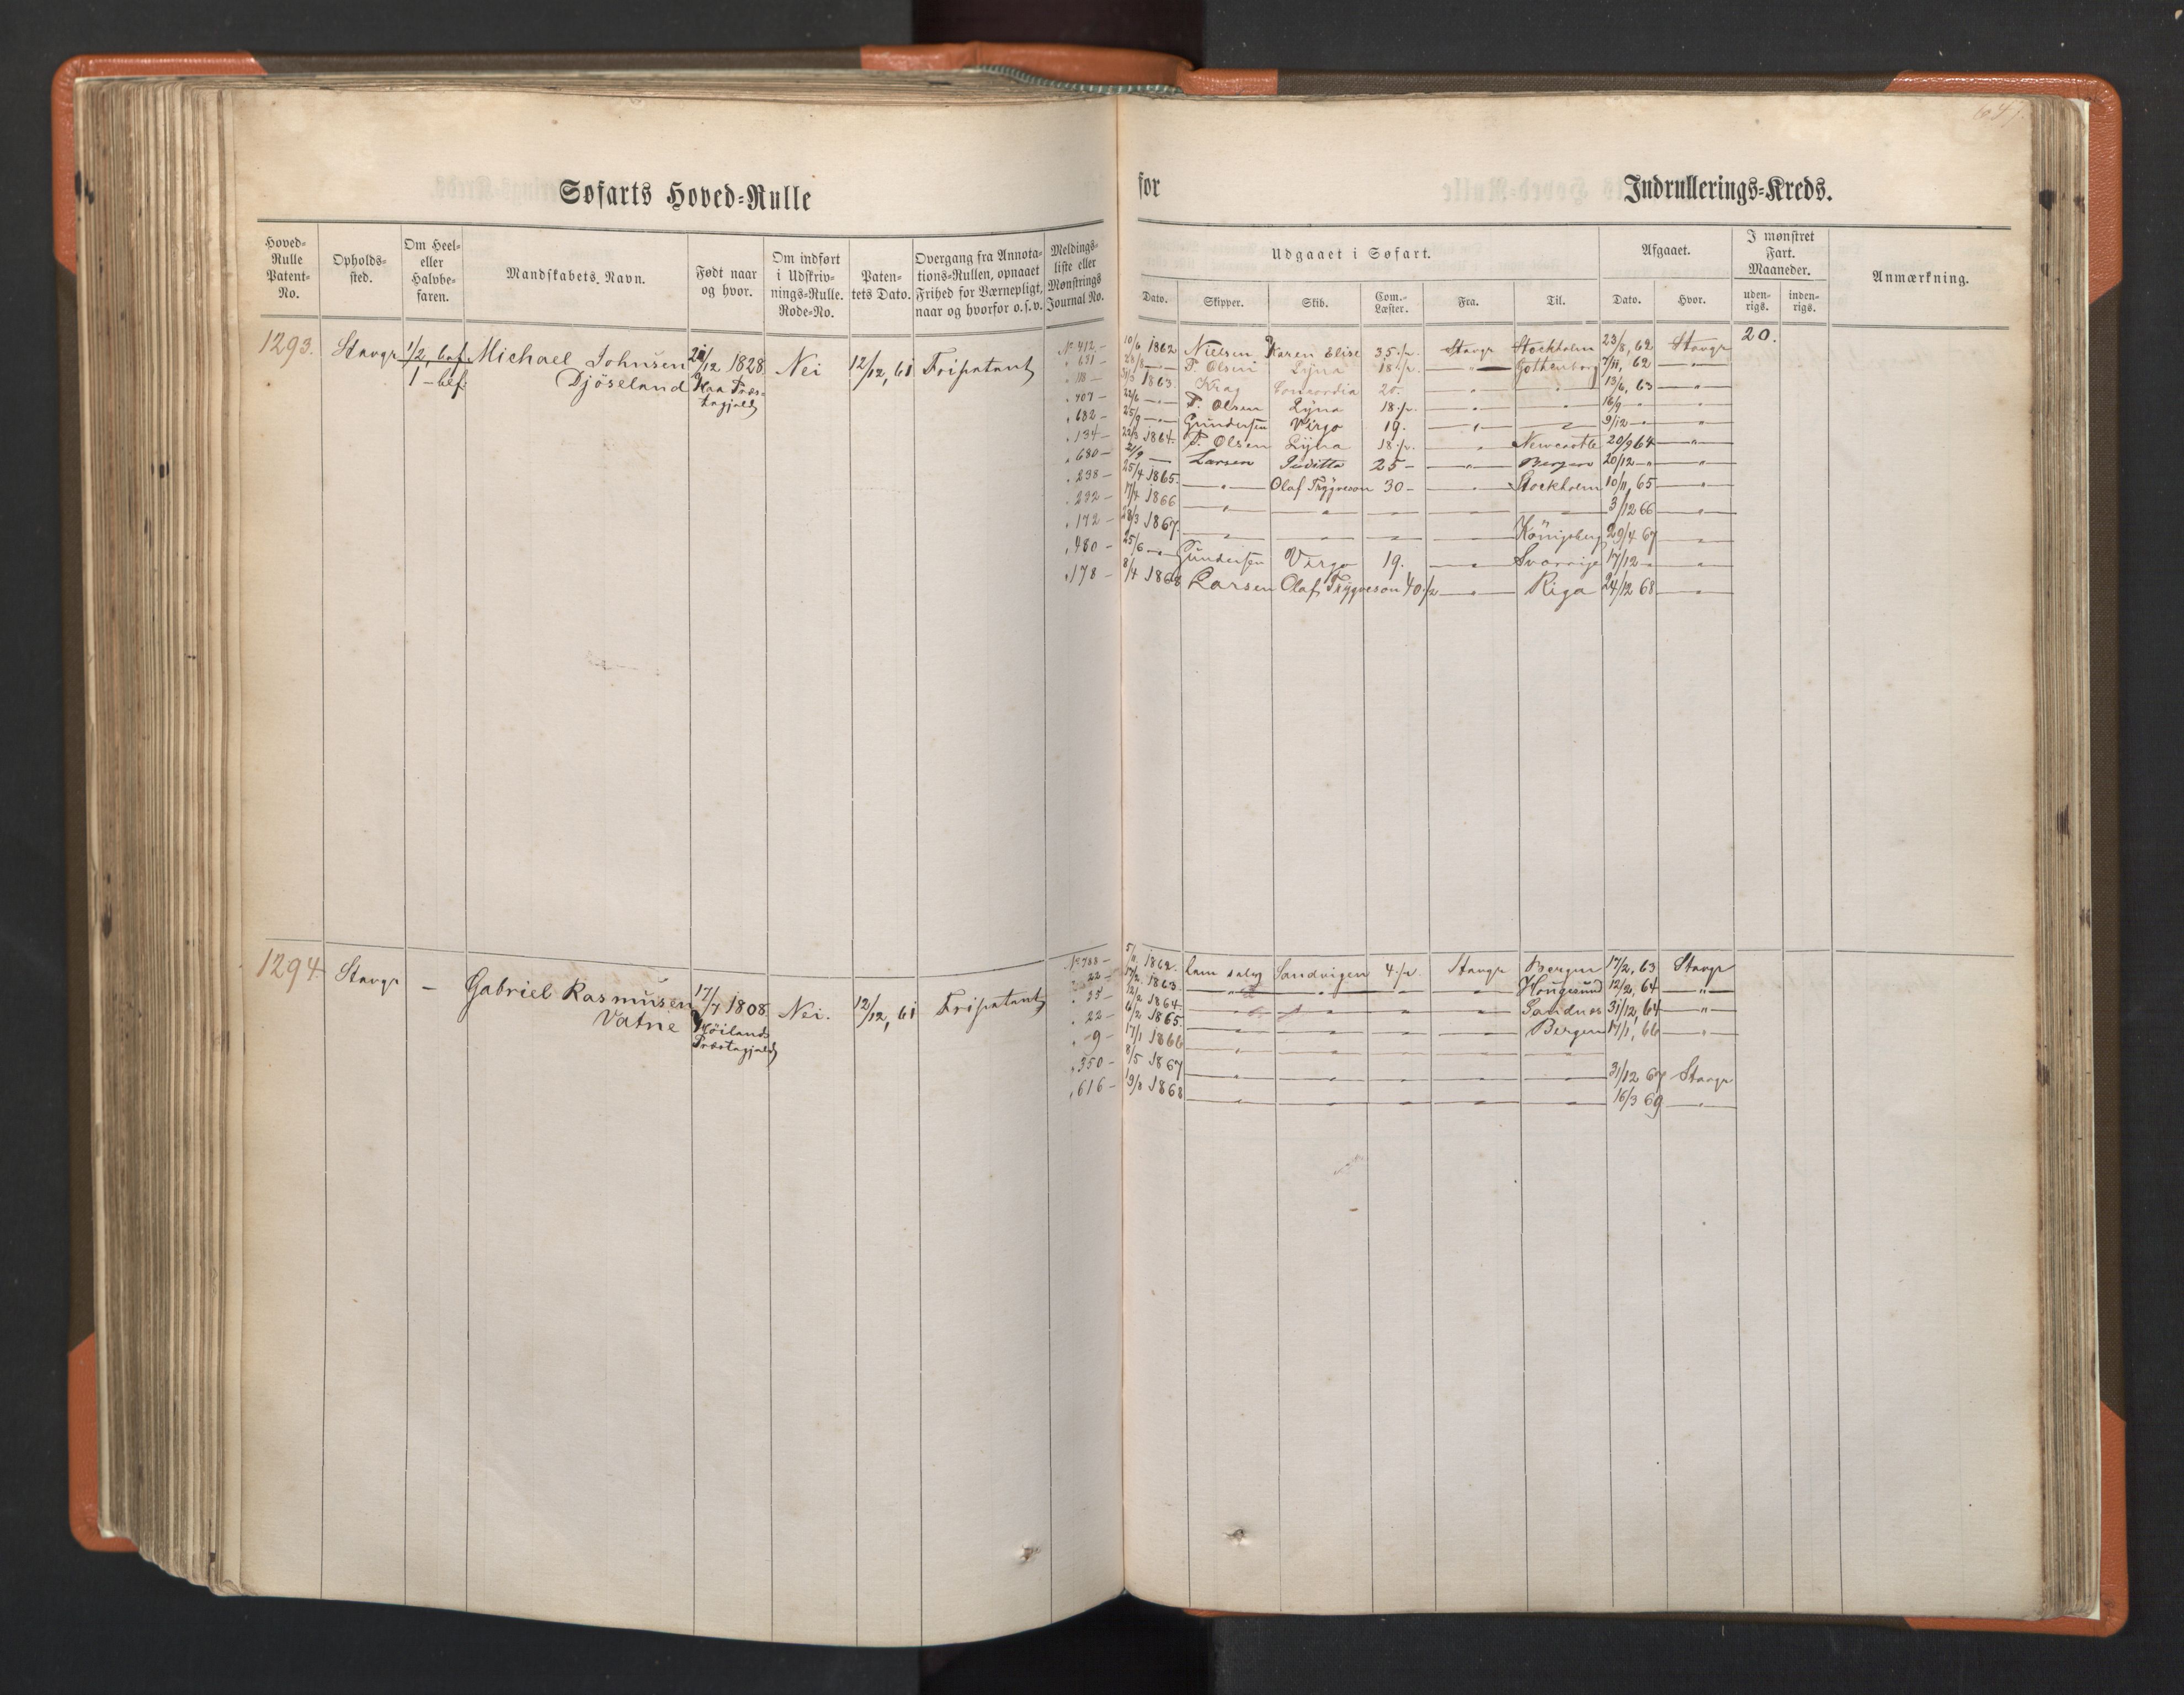 647.
Søfarts Hoved-Rulle
for
Indrullerings-Kreds.
Hoved-Rulle Patent-No.
Opholds-sted.
Om Heel- eller Halvbe-faren.
Mandskabets Navn.
Født naar og hvor.
Om indført i Udskriv-nings-Rulle. Rode-No.
Paten-tets Dato.
Overgang fra Annota-tions-Rullen, opnaaet Frihed for Værnepligt, naar og hvorfor o.s.v.
Meldings-liste eller Mønstrings Journal No.
Udgaaet i Søfart.
Dato. Skipper. Skib. Com.-Læster. Fra. Til.
Afgaaet.
Dato. Hvor.
I mønstret Fart. Maaneder.
uden-rigs. inden-rigs.
Anmærkning.
1293. Stavgr 1/2 bef. Michael Johnsen 21/12 1828 Nei 12/12, 61 Fripatent
1 – bef. Djöseland Haa Præs-
tegjeld
No 412 – 10/6 1862 Nielsen Karen Elise 35 1/2. Stavgr Stockholm 23/8, 62 Stavgr 20.
" 631 – 23/8 – " – T. Olsen Lyna 18 1/2. – " – Gothenborg 7/11, 62 – " –
" 118 – 31/3 1863. Krag Concordia 20. " " 13/6, 63 "
" 407 – 22/6 – " – T. Olsen Lyna 18 1/2. – " – – " – 16/9 – " – "
" 682 – 25/9 – " – Gundersen Virgo 19. – " – – " – 9/12 – " "
" 134 – 22/3 1864. T. Olsen Lyna 18 1/2. – " – Newcastle 20/9 64 – " –
" 680 – 21/9 – Larsen Juditta 25 – – " – Bergen 20/12 – " – – " –
" 238 – 25/4 1865. – " – Olaf Trygveson 30 – – " – Stockholm 10/11, 65 – " –
" 232 – 17/4 1866 – " – – " – – " – – " – – " – 3/12 66 – " –
" 172 – 28/3 1867. – " – – " – – " – – " – Königsberg 29/4 67 – " –
" 480 – 25/6 – " – Gundersen Virgo 19. – " – Sverrige 17/12 – " – " –
" 178 – 8/4 1868 Larsen Olaf Trygveson 40 1/2 – " – Riga 24/12 68 – " –
1294. Stavgr – Gabriel Rasmusen 17/7 1808. Nei. 12/12, 61 Fripatent
Vatne Höilands
Præstegjeld
No 788 – 5/11 1862. Sandvigen 4 1/2. Stavgr Bergen 17/2, 63 Stavgr
" 22 – 17/2 1863 – " – – " – – " – – " – Hougesund 12/2, 64 – " –
" 25 – 12/2 1864. – " – – " – – " – – " – Sandnes 31/12, 64 – " –
" 22 – 6/2 1865. – " – – " – – " – – " – Bergen 17/1, 66 – " –
" – 9 – 17/1 1866 – " – – " – – " – – " – – " –
" 350 – 8/5 1867 – " – – " – – " – – " – – " – 31/12 67 Stavgr
" 616 – 19/8 1868 – " – – " – – " – – " – – " – 16/3 69 – " –